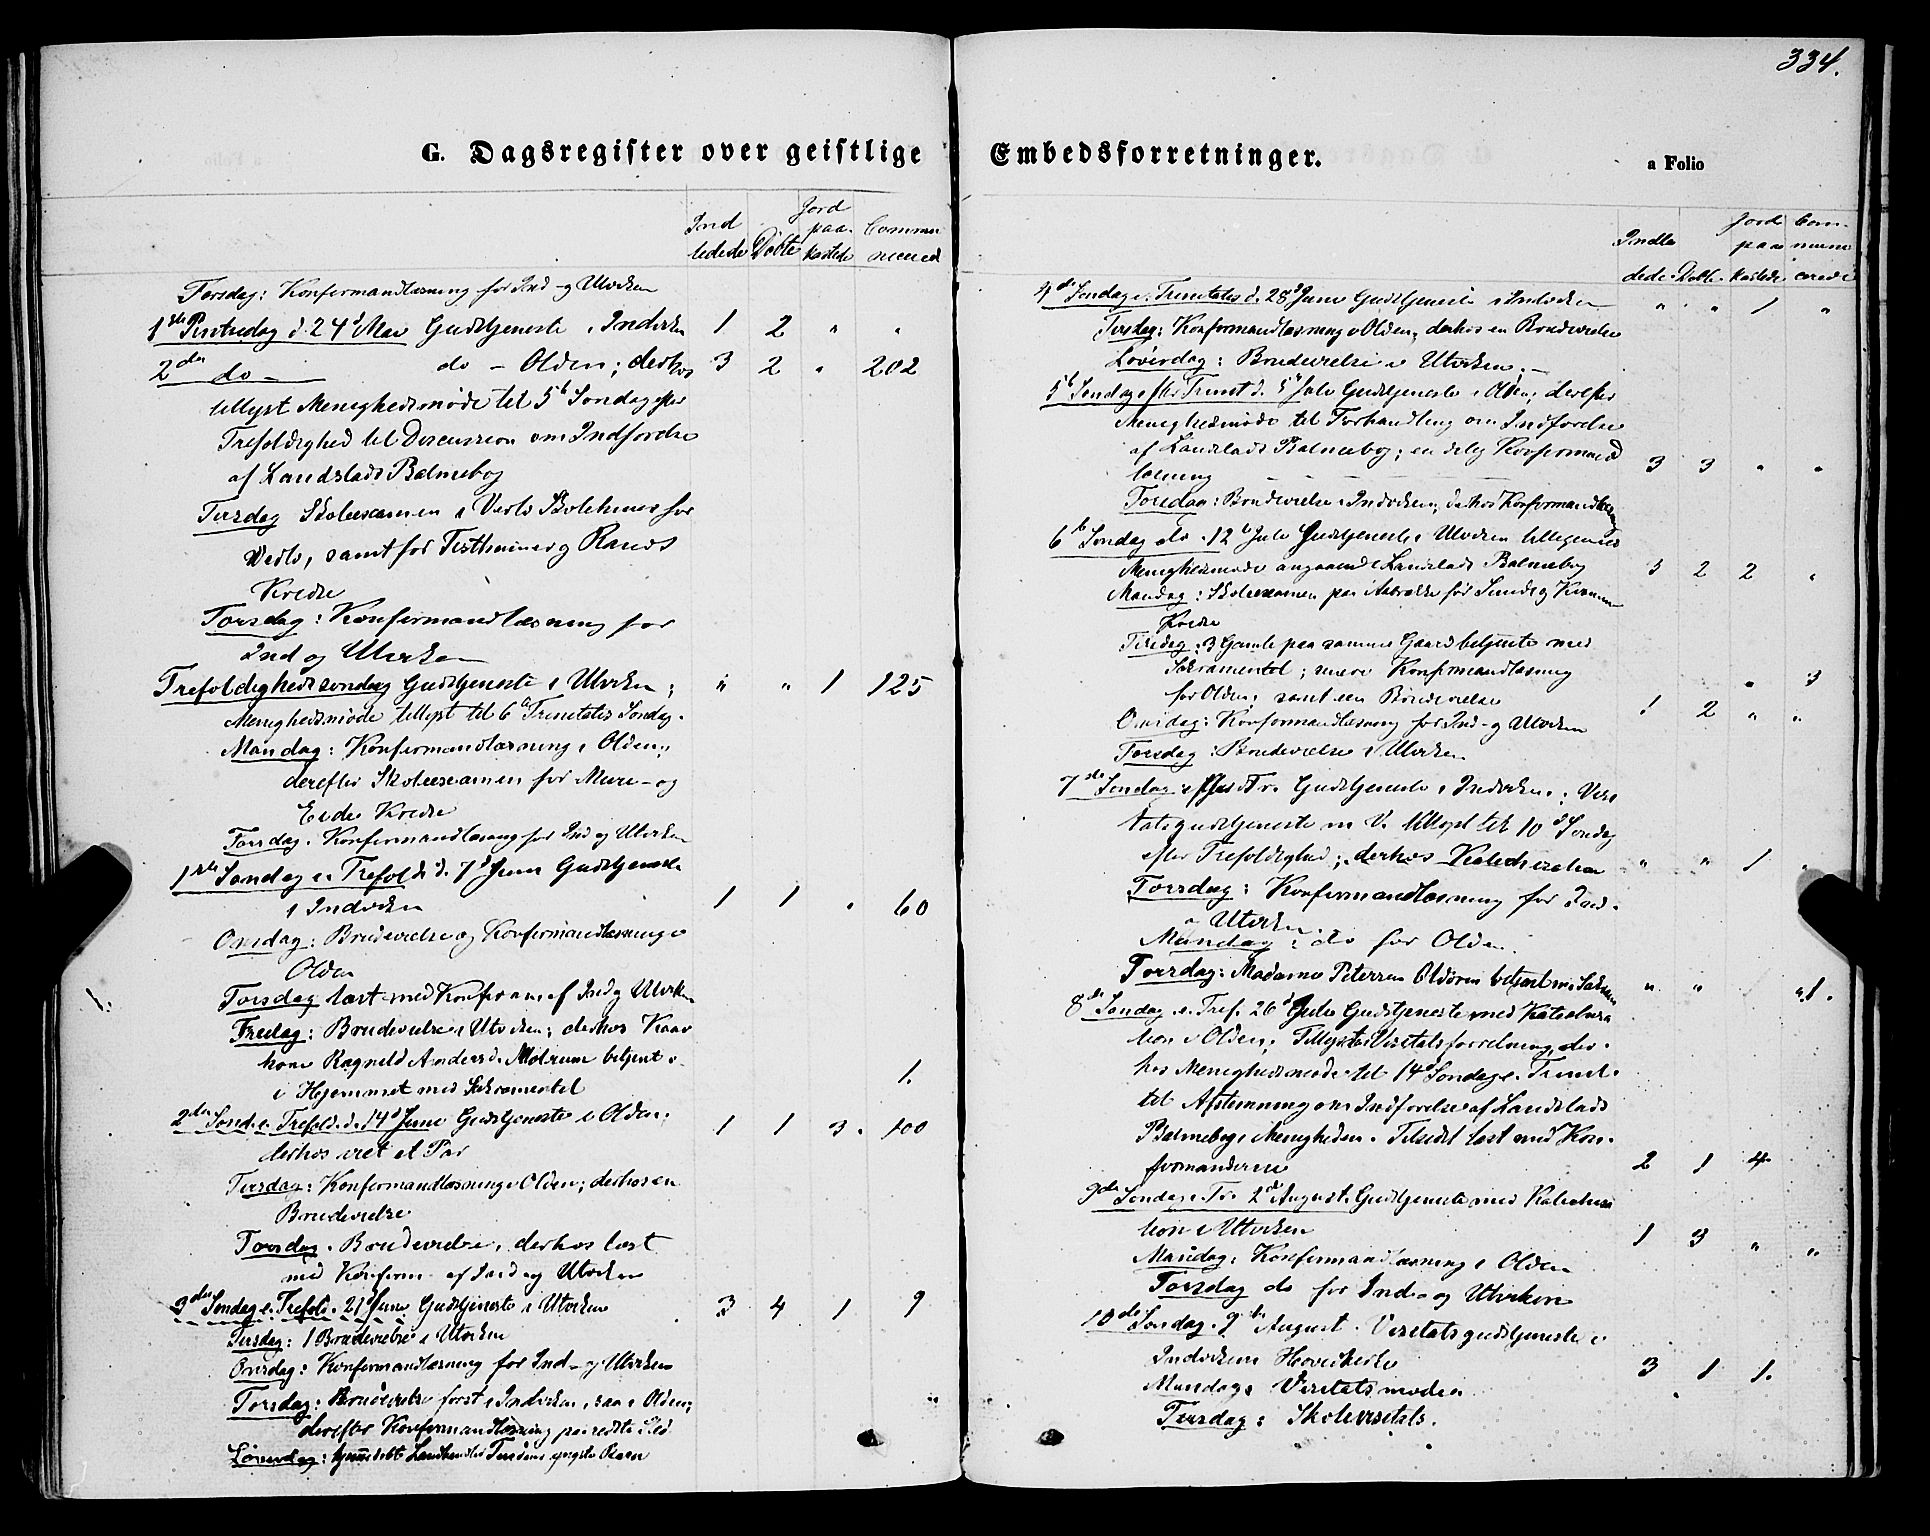 334.
G. Dagsregister over geistlige Embedsforretninger.
a Folio
Ind
ledede
Døbte
Jord
paa-
kastede
Commu
nicered
Torsdag: Konfirmandlæsning for Ind- og Utviken
1ste Pintsedag d. 24d Mai Gudstjeneste i Indviken 1 2 " "
2den do - do - Olden; derhos 3 2 " 202
tillyst Menighedsmøde til 5te Søndag efter
Trefoldighed til Discussion om Indførelse
af Landstads Psalmebog
Tirsdag Skoleexamen i Skolehuus for
samt for og
Kredse
Torsdag: Konfirmandlæsning for
Ind og Utviken
Trefoldighedssøndag Gudstjeneste i Utviken; " " 1 125
Menighedsmøde tillyst til 6te Trinitatis Søndag.
Mandag: Konfirmandlæsning i Olden;
derefter Skoleexamen for Mure- og
Eide Kredse
Torsdag. Konfirmandlæsning for Ind og Utviken
1ste Søndag e. Trefold. d. 7d Juni Gudstjeneste
i Indviken 1 1 " 60
Onsdag: Brudevielse og Konfirmandlæsning i
Olden
Torsdag læst med Konfirm. af Ind og Utviken
Fredag: Brudevielse i Utviken; derhos
kone Ragnild Andersd. betjent
i Hjemmet med Sakramentet 1.
2den Sønd. e. Trefold. d. 14d Juni Gudstjeneste i Olden; 1 1 3. 100
derhos viet et Par
Tirsdag: Konfirmandlæsning i Olden; derhos en
Brudevielse
Torsdag. Brudevielse, derhos læst
med Konfirm. af Ind og Utviken
3die Søndag e. Trefold. 21d Juni Gudstjeneste i Utviken 3 4 1 9
Tirsdag: 1 Brudevielse i Utviken
Onsdag: Konfirmandlæsning for Ind- og Utviken
Torsdag: Brudevielse først i Indviken, saa i Olden;
derefter Konfirmandlæsning
Løverdag: hjemmedøbt Landhandler yngste
Indle
dede
Døbte
Jord
paa
kastede
Com-
muni
cerede
4de Søndag e. Trinitatis d. 28d Juni Gudstjeneste i Indviken " " 1 "
Tirsdag: Konfirmandlæsning i Olden; derhos en Brudevielse
Løverdag: Brudevielse i Utviken; -
5te Søndag efter Trinit. d. 5te Juli Gudstjeneste i Olden; derefter
Menighedsmøde til Forhandling om Indførelse
af Landstads Psalmebog; endelig Konfirmand
læsning 3 3 " "
Torsdag: Brudevielse i Indviken; derhos Konfirmandlæsning
6te Søndag do. 12te Juli Gudstjeneste i Utviken tilligemed
Menighedsmøde angaaende Landstads Psalmebog 3 2 2 "
Mandag: Skoleexamen paa for Sunde og
Kredse
Tirsdag: 3 Gamle paa samme Gaard betjente med
Sakramentet; Konfirmandlæsning " 3
for Olden; samt een Brudevielse
Onsdag: Konfirmandlæsning for Ind- og Utviken 1 2 " "
Torsdag: Brudevielse i Utviken
7de Søndag efter Tr. Gudstjeneste i Indviken; Visi
tatsgudstjeneste m. V. tillyst til 10d Søndag
efter Trefoldighed; derhos Katechisation " " 1 "
Torsdag: Konfirmandlæsning for Ind-
og Utviken.
Mandag: do for Olden
Torsdag: Madame Petersen Oldøren betjent m. Sakram. " " 1.
8de Søndag e. Tref. 26d Juli Gudstjeneste med Katechisa
tion i Olden; Tillyst Visitatsforretning, der-
hos Menighedsmøde til 14d Søndag e. Trinit.
til Afstemning om Indførelse af Landstads
Psalmebog i Menigheden. Tilsidst læst med Kon-
firmanderne 2 1 4
9de Søndag e. Tr. 2d August. Gudstjeneste med Katechisa
tion i Utviken 1 3 " "
Mandag: Konfirmandlæsning i Olden
Torsdag do for Ind- og Utviken
10de Søndag. 9de August. Visitatsgudstjeneste i
Indvikens Hovedkirke 3 1 1.
Mandag: Visitatsmøde
Tirsdag: Skolevisitats.